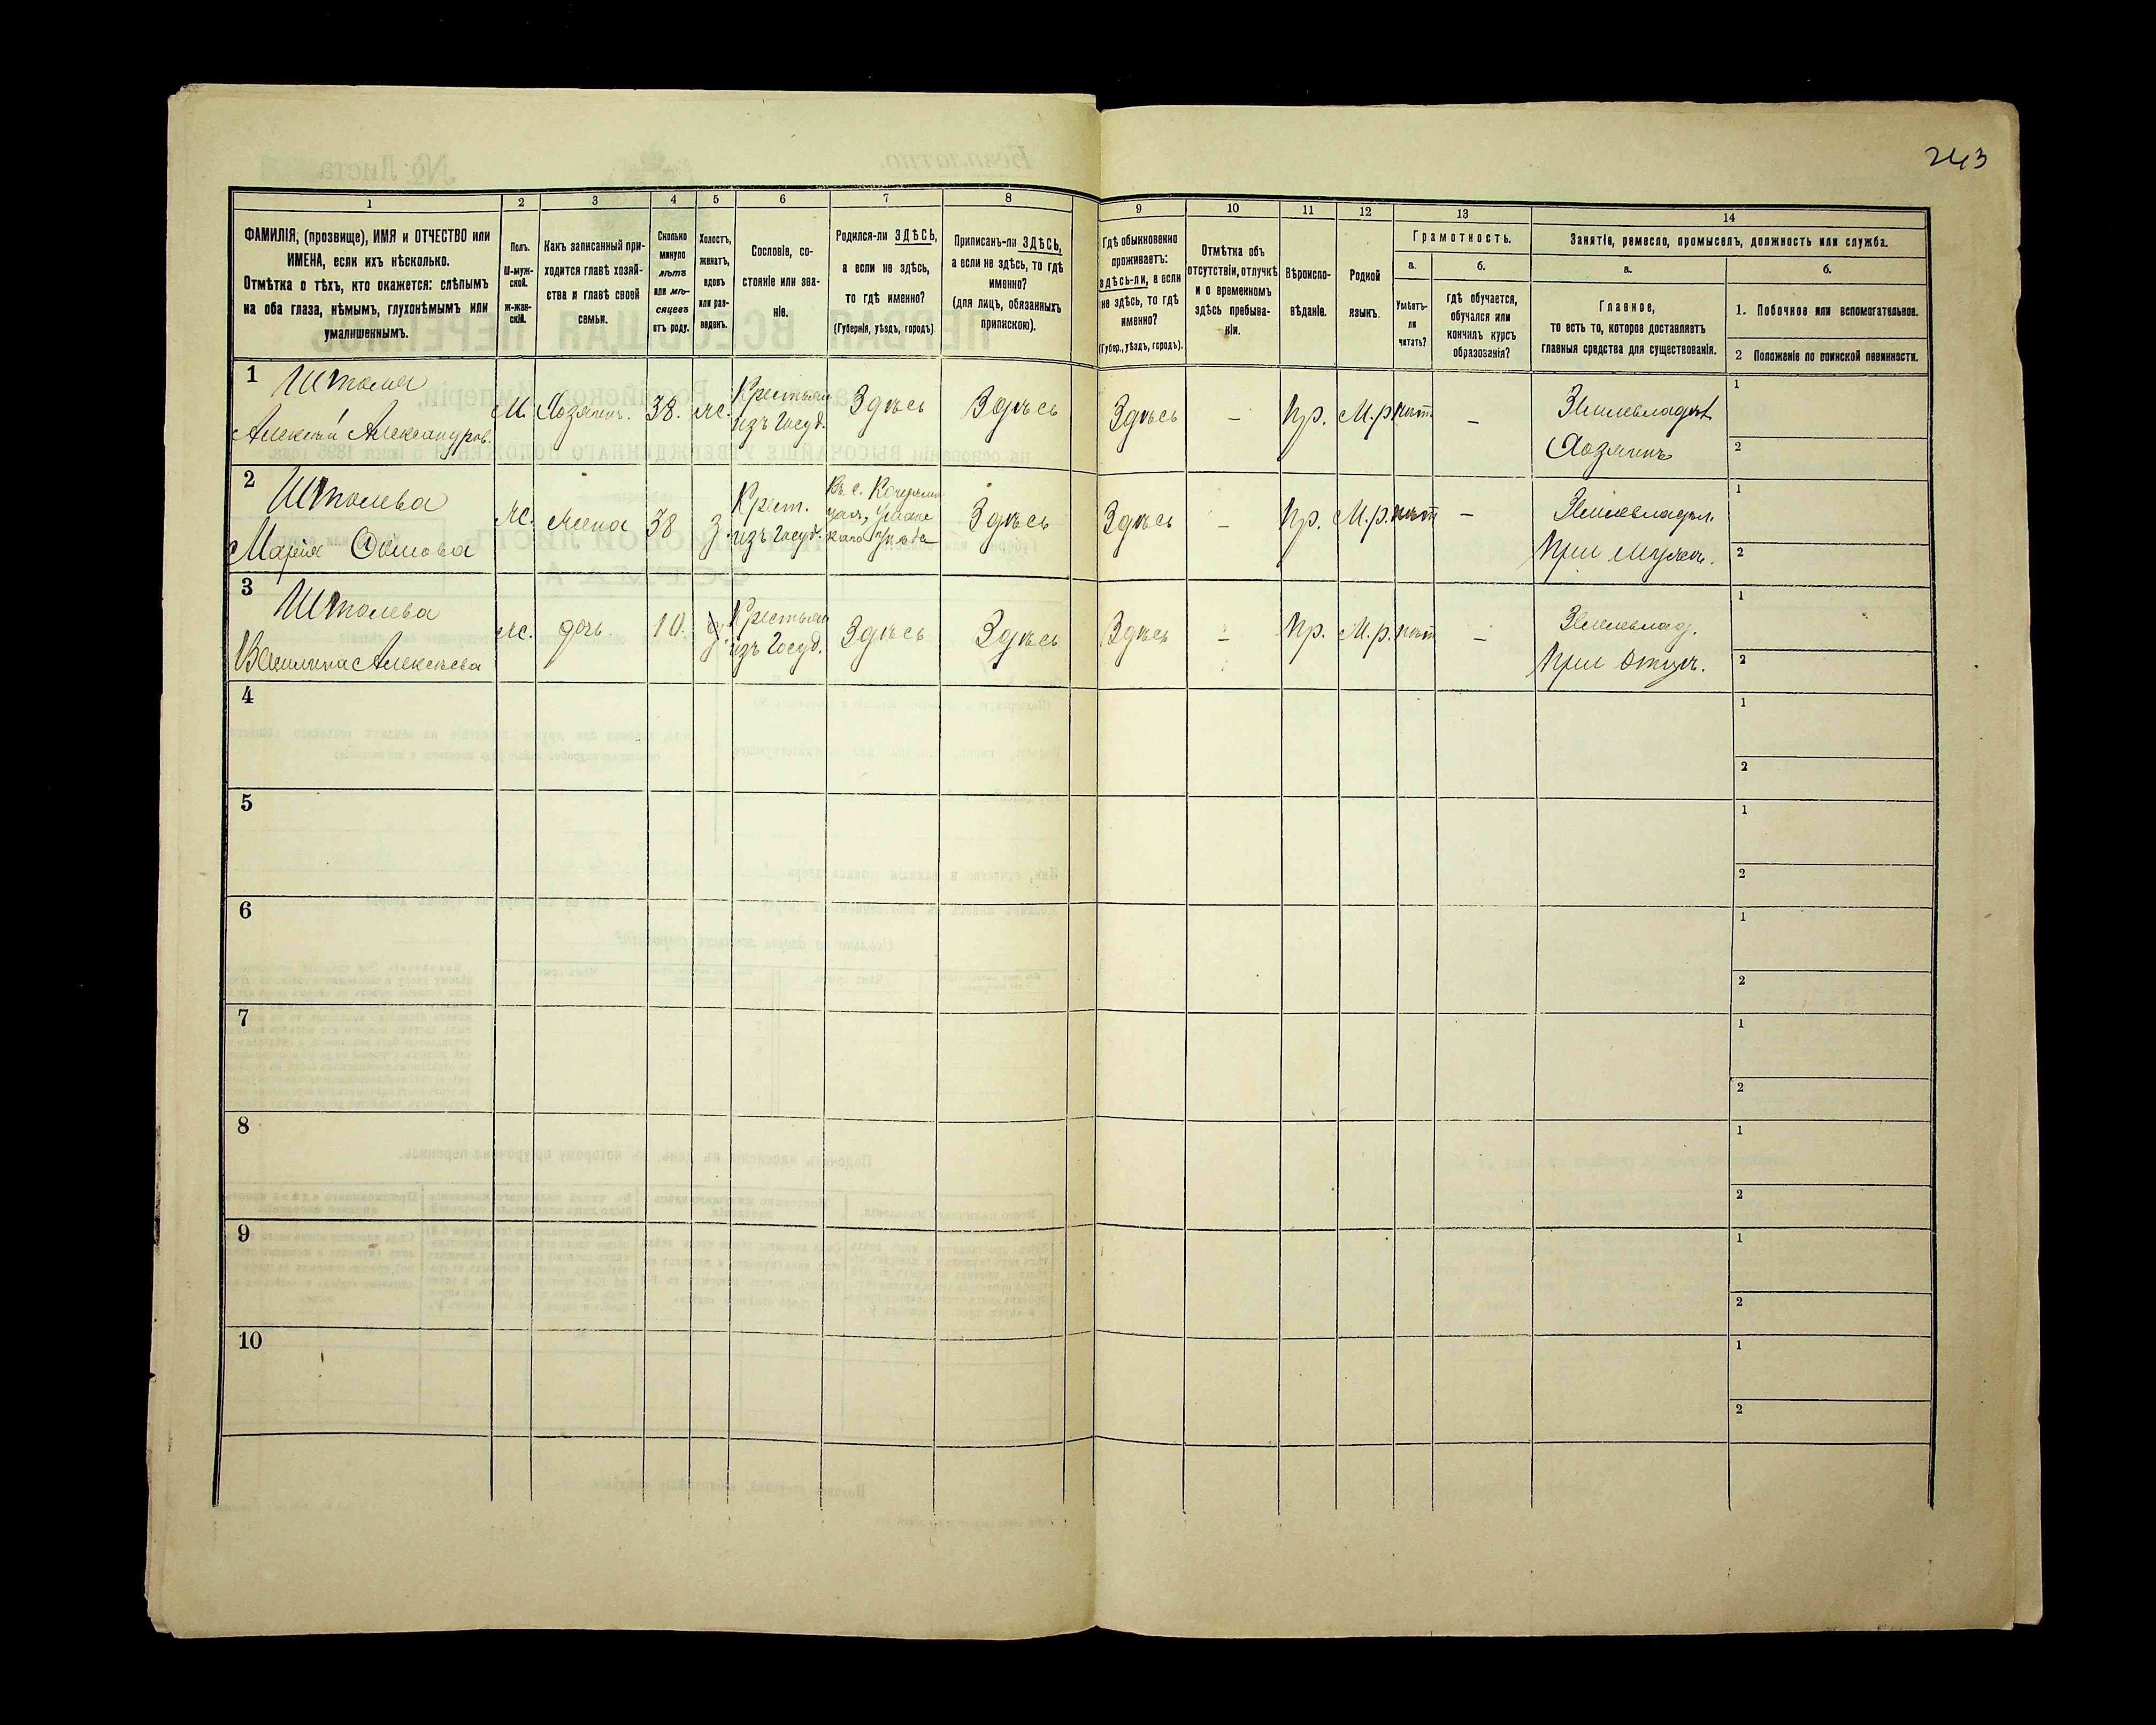 243
1
2
3
4
5
6
7
8
9
10
11
12
13
14
ФАМИЛІЯ, (прозвище), ИМЯ и ОТЧЕСТВО или
ИМЕНА, если ихъ нѣсколько.
Отмѣтка о тѣхъ, кто окажется: слѣпымъ
на оба глаза, нѣмымъ, глухонѣмымъ или
умалишеннымъ.
Полъ.
М-муж-
ской.
Ж-жен-
скій.
Какъ записанный при-
ходится главѣ хозяй-
ства и главѣ своей
семьи.
Сколько
минуло
лѣтъ
или мѣ-
сяцевъ
отъ роду.
Холостъ,
женатъ,
вдовъ
или раз-
веденъ.
Сословіе, со-
стояніе или зва-
ніе.
Родился-ли ЗДѢСЬ,
а если не здѣсь,
то гдѣ именно?
(Губернія, уѣздъ, городъ).
Приписанъ-ли ЗДѢСЬ,
а если не здѣсь, то гдѣ
именно?
(для лицъ, обязанныхъ
припискою).
Гдѣ обыкновенно
проживаетъ:
здѣсь-ли, а если
не здѣсь, то гдѣ
именно?
(Губер., уѣздъ, городъ).
Отмѣтка объ
отсутствіи, отлучкѣ
и о временномъ
здѣсь пребыва-
ніи.
Вѣроиспо-
вѣданіе.
Родной
языкъ.
Грамотность.
а.
Умѣетъ-
ли
читать?
б.
гдѣ обучается,
обучался или
кончилъ курсъ
образованія?
Занятіе, ремесло, промыселъ, должность или служба.
а.
Главное,
то есть то, которое доставляетъ
главныя средства для существованія.
б.
1. Побочное или вспомогательное.
2 Положеніе по воинской повинности.
1
Алексѣй Александров.
М.
Хозяинъ.
38.
ж.
Крестьян
изъ Госуд.
Здѣсь
Здѣсь
Здѣсь
–
Пр.
М.р
нѣт
–
Землевладѣл
Хозяинъ
1
2
2
Марія
ж.
жена
38
з.
Крест.
изъ Госуд.
Здѣсь
Здѣсь
–
Пр.
М.р.
нѣт
–
Землевладѣл.
При мужѣ.
1
2
3
Алексѣева
ж.
дочь
10.
Крестьян
изъ Госуд.
Здѣсь
Здѣсь
Здѣсь
–
Пр.
М.р.
нѣт
–
Землевлад.
При отцѣ.
1
2
4
1
2
5
1
2
6
1
2
7
1
2
8
1
2
9
1
2
10
1
2